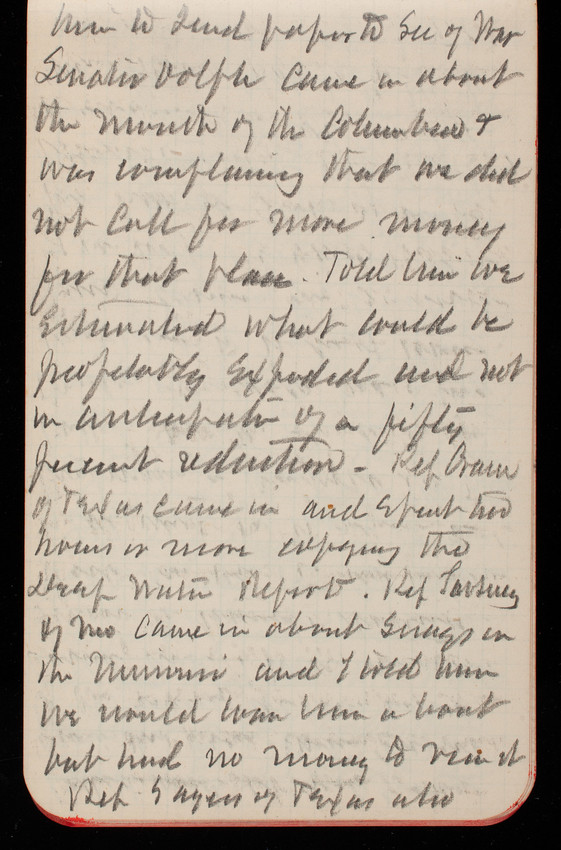 him to send papers to Sec of War
Senator Dolph came in about
the mouth of the Columbia &
was complaining that we did
not call for more money
for that place. Told him we
estimated what could be
profitably expended and not
in anticipation of a fifty
percent reduction - Rep Crain
of Texas came in and spent two
hours or more copying the
Deep Water Report. Rep Tarsney
of Mo came in about snags in
the Missouri and I told him
we would loan him a boat
but had no money to run it
Rep Sayers of Texas also